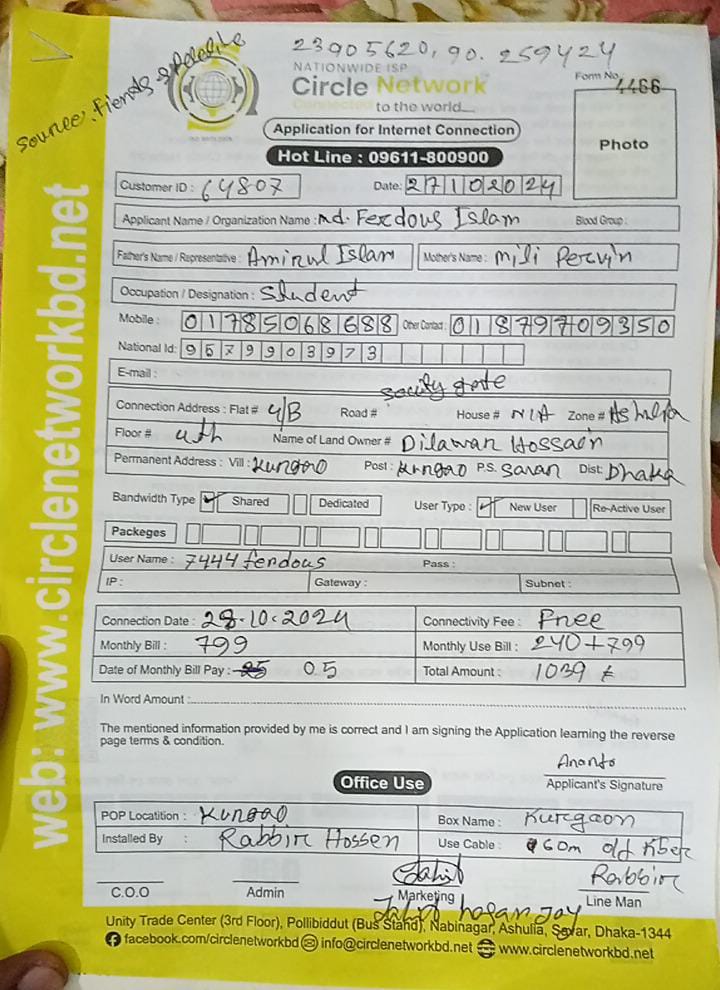 23905620, 90. 259424
Source: Fiends & Relative
NATIONWIDE ISP
Circle Network
Connected to the world....
Form No. 4466
Photo
Application for Internet Connection
Hot Line : 09611-800900
Customer ID : 64807 Date: 27102024
Applicant Name / Organization Name : Md. Ferdous Islam Blood Group :
Father's Name / Representative : Amirul Islam Mother's Name : Mili Pervin
Occupation / Designation : Student
Mobile : 01785068688 Other Contact : 01879709350
National Id: 9579903973
E-mail :
Connection Address : Flat # 4/B Road # gate House # N/A Zone # Ashulia
Floor # 4th Name of Land Owner # Dilawar Hossain
Permanent Address : Vill : Kungao Post : Kungao P.S. Savar Dist: Dhaka
Bandwidth Type ✓ Shared Dedicated User Type : ✓ New User Re-Active User
Packeges
User Name : 7444 ferdous Pass :
IP : Gateway : Subnet :
Connection Date : 28.10.2024 Connectivity Fee : Free
Monthly Bill : 799 Monthly Use Bill : 240+799
Date of Monthly Bill Pay : 25 05 Total Amount : 1039 ৳
In Word Amount :
The mentioned information provided by me is correct and I am signing the Application learning the reverse
page terms & condition.
Ananto
Applicant's Signature
Office Use
POP Locatition : Kungao Box Name : Kurgaon
Installed By : Rabbir Hossen Use Cable : 60m old fiber
Jahid Rabbir
C.O.O Admin Marketing Line Man
Jahid hasan Joy
Unity Trade Center (3rd Floor), Pollibiddut (Bus Stand), Nabinagar, Ashulia, Savar, Dhaka-1344
facebook.com/circlenetworkbd info@circlenetworkbd.net www.circlenetworkbd.net
web: www.circlenetworkbd.net